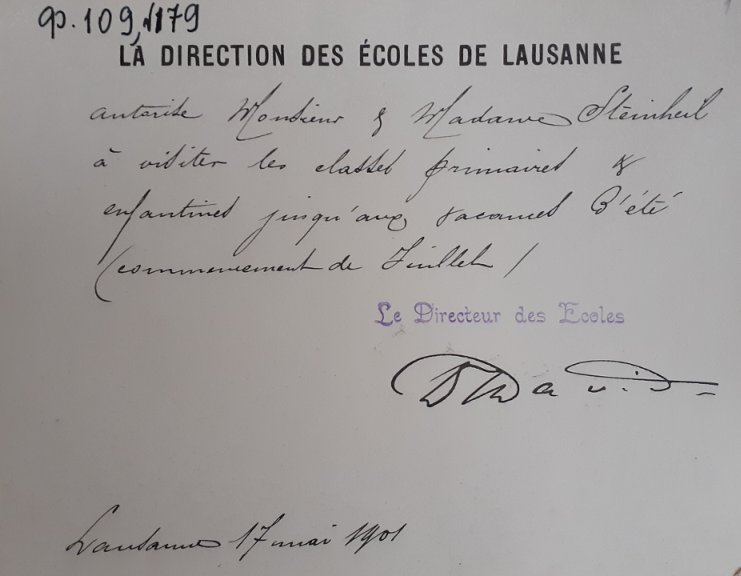 ф. 109, №179
LA DIRECTION DES ÉCOLES DE LAUSANNE
autorise Monsieur & Madame Steinheil
à visiter les classes primaires &
enfantines jusqu'aux vacances d'été
(commencement de Juillet)
Le Directeur des Ecoles
Lausanne 17 mai 1901